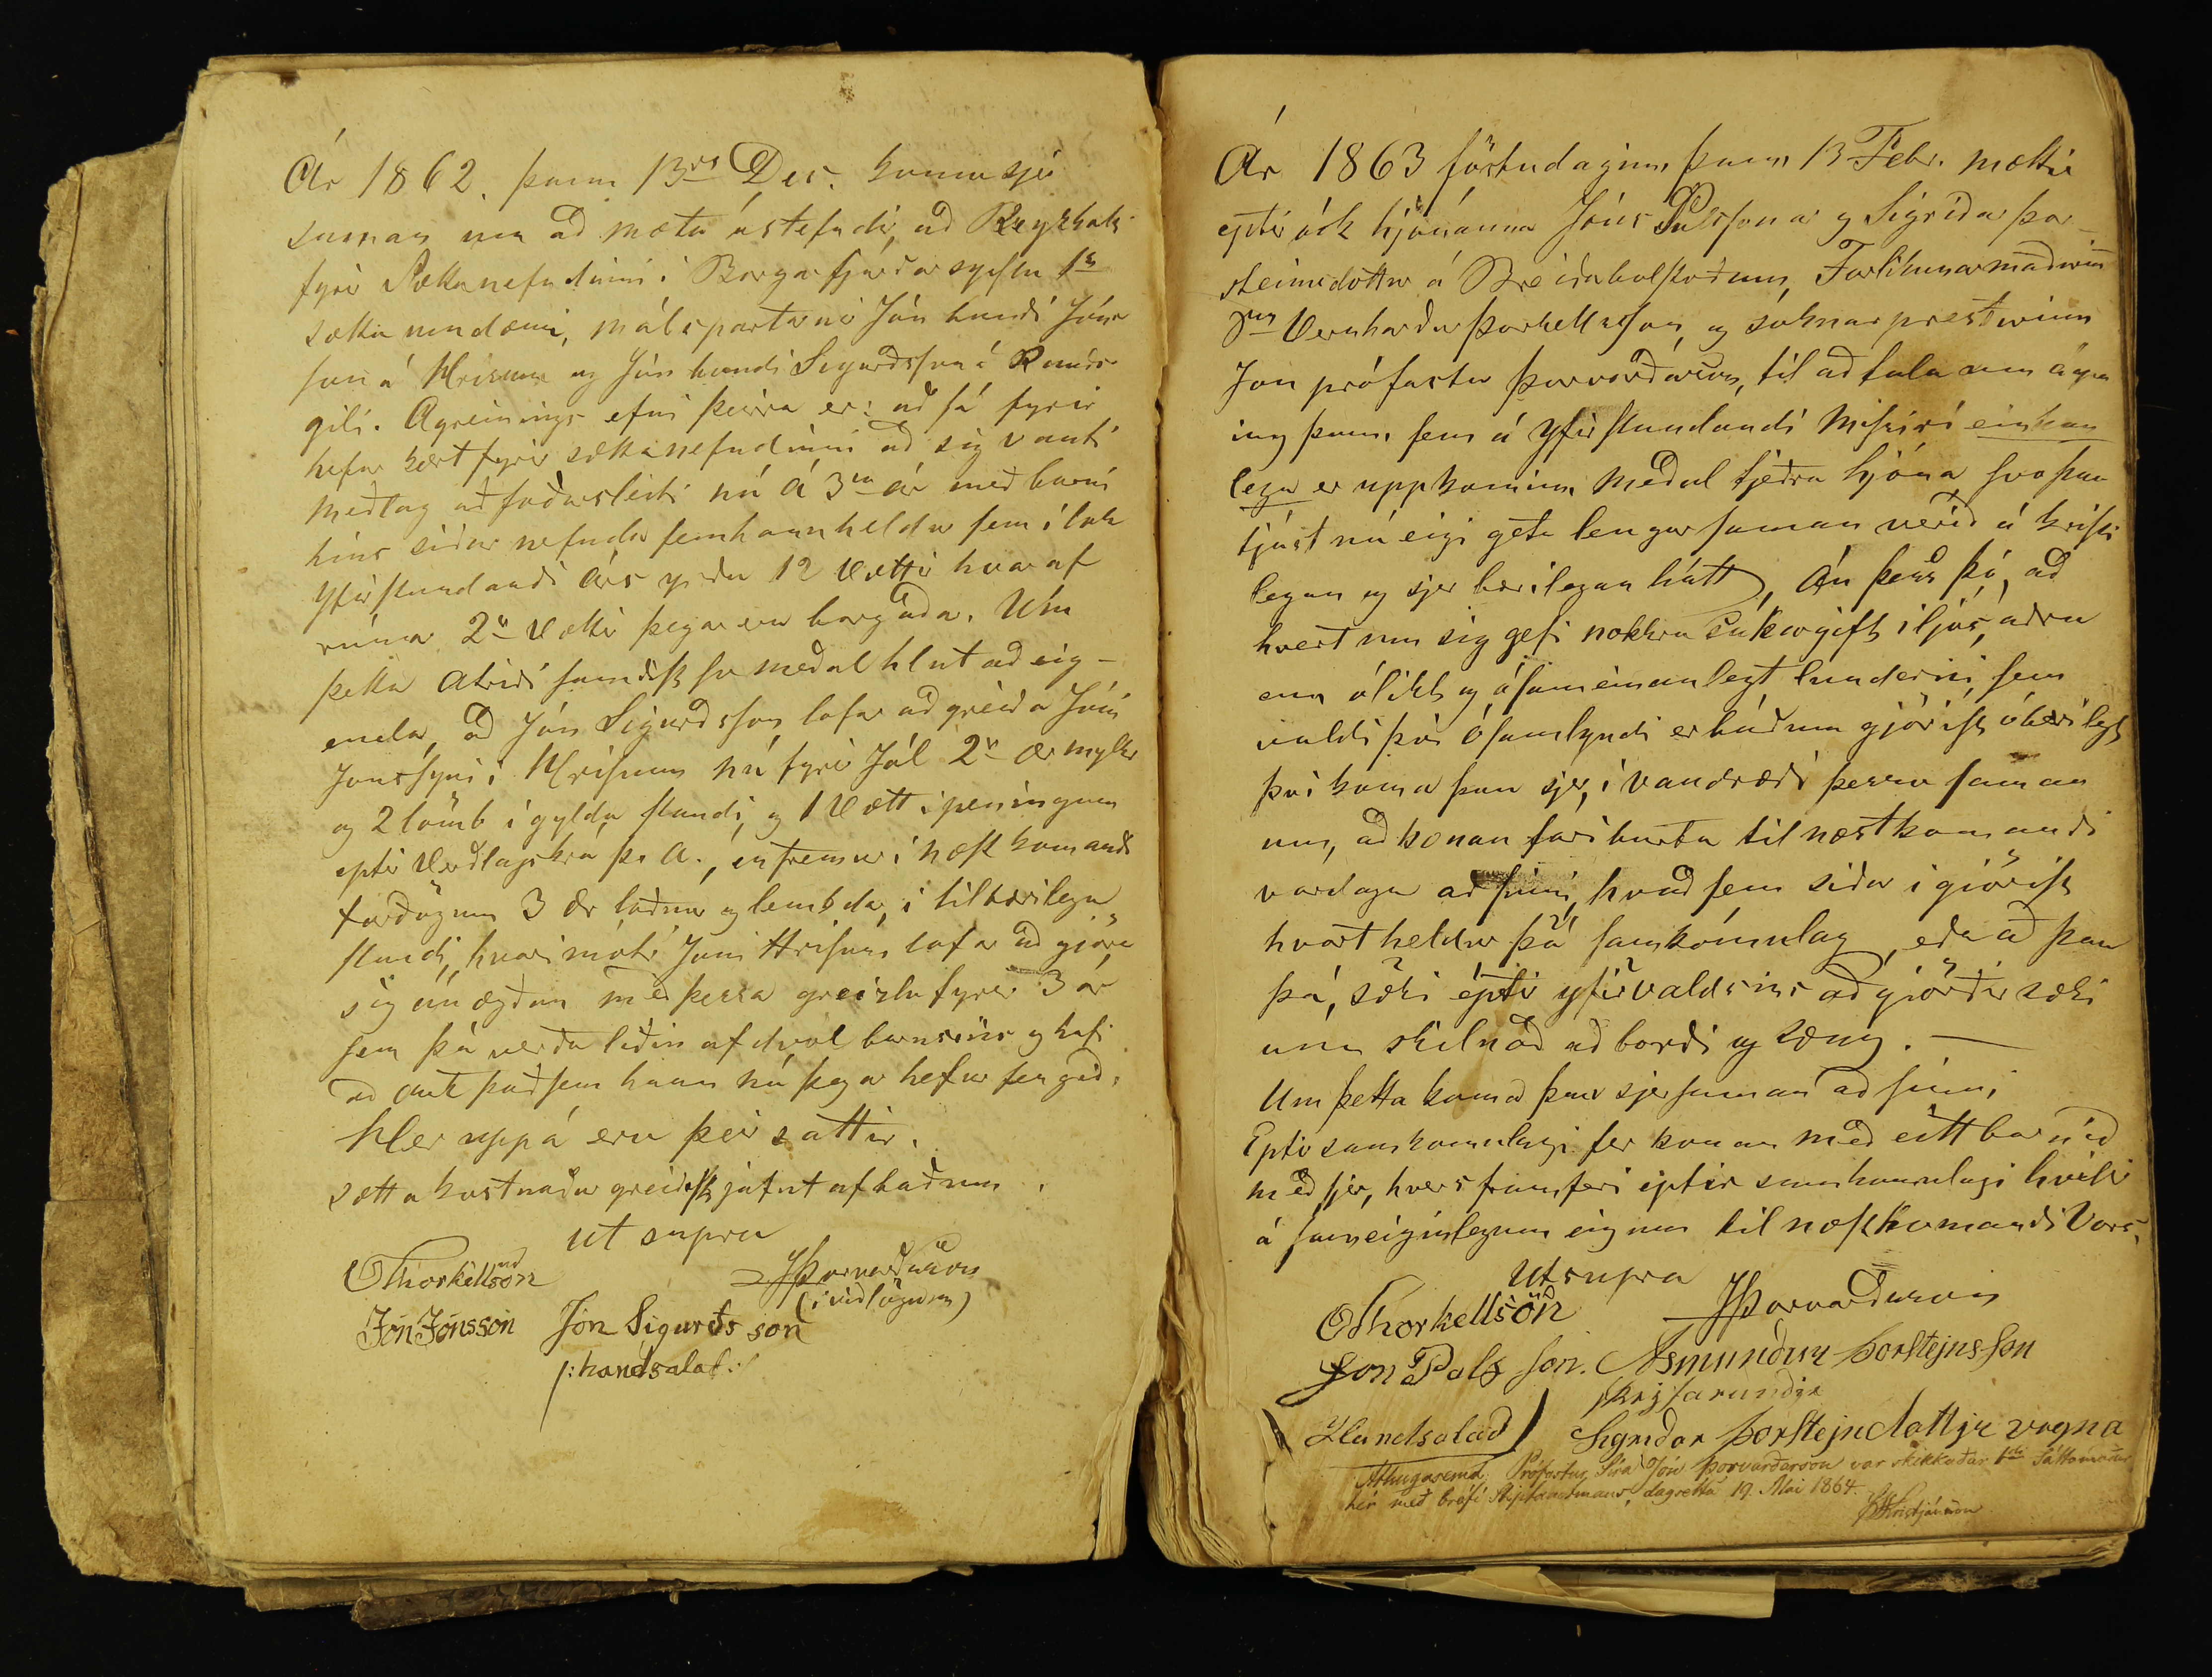 Ár 1862. þann 13da Des. komu sjer
saman um að mæta ástefndir, að Reykholti
fyrir Sættanefndinni í Borgarfjarðarsýslu 1s
sætta umdæmi, málspartarnir Jón bondi Jóns
son á Hrisum og Jón bondi Sigurðsson á Rauðs
gili. Agreinings efni þeirra er: að sá fyrir
hefur kært fyrir sættanefndinni að sig vanti
meðlag að foðursleiti nú á 3ia ár með barni
hins siðar nefnda sem hann heldur sem í lok
Yfirstandandi árs yrðu 12 Vættir hvar af
rúmar 2r Vættir þegar eru borgaðar. Um
þetta atriði samdist svo meðal hlut að eig-
enda, að Jón Sigurðsson lofar að greiða Jóni
Jonssyni i Hrisum nú fyrir Jól 2r ær mylkar
og 2 lömb í gyldu standi, og 1 Vætt i peningum
eptir Verðlagskrá þ. a., en fremur í næst komandi
fardögum 3 ær loðnar og lembdar, i tilbærilegu
standi, hvarimóti Jón i Hrisum lofar að gjöra
sig ánægðan með þessa greizlu fyrir 3 ár
sem þá verða liðin af dvöl barnsins og hafi
að auk það sem hann nú þegar hefur fengið.
Hier uppá eru þeir sáttir.
Sættakostnaður greiðist jafnt af báðum.
ut supra
OThorkellson JÞorvarðarson
(i viðlögum)
Jón Jónsson Jón Sigurðs son
/: handsalað :/
Ár 1863 föstudaginn þann 13 Febr. mættu
eptir ósk hjónanna Jóns Pálssonar og Sigriðar Þor-
steinsdottur á Breiðabolstoðum, Forlikunarmaðurin
Vernharður Þorkellsson, og soknarpresturinn
Jon prófastur Þorvarðarson, til að tala um ágrein
ing þann sem á Yfirstandandi Missiri einkan
lega er uppkominn meðal tjeðra hjóna, svo þau
tjást nú eigi geta lengur saman verið á kristi
legan og sjer bærilegan hátt, án þess þó, að
hvert um sig gefi nokkra Sakargift i ljós, aðra
enn ólikt og ósameinanlegt lunderni sem
valdi því ósamlyndi er báðum gjörist óbærilegt
þvi koma þau sjer, í vandræði þessu saman
um, að konan fari burtu til næstkomandi
vordaga að sinni, hvað sem siðar i giörist
hvört heldur þá samkomulag, eða að þau
þá, sæki eptir yfirvaldsins aðgiörðir sæki
um skilnað að borði og sæng. —
Um þetta koma þau sjer saman að sinni,
Eptir samkomulagi fer konan með eitt barnið
með sjer, hvers framferi eptir samkomulagi hvilir
á sameiginlegum eignum til næstkomandi Vors.
Ut supra
OThorkellsön JÞorvarðarson
Jon Pals son. Asmundur Þorstejns son
Handsalað Sigriður Þorstejndottjr vegna
Athugasemd. Prófastur Síra Jón Þorvarðarson var skikkaðar 1ste Sáttamaður
hér með bréfi stiptamtmanns, dagsettu 19. Mai 1864.